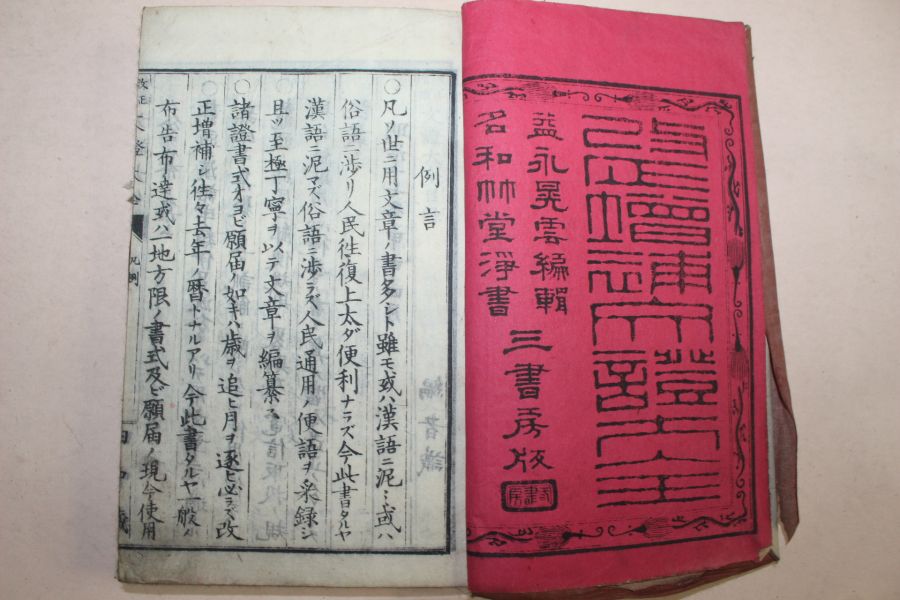 增補文證大全
益永晃雲編輯
名和竹堂淨書
三書房版
例言
○凡ソ世ニ用文章ノ書多シト雖モ或ハ漢語ニ泥ミ或ハ
俗語ニ渉リ人民往復上太ダ便利ナラズ今此書タルヤ
漢語ニ泥マズ俗語ニ渉ラズ人民通用ノ便語ヲ采録シ
且ツ至極丁寧ヲ以テ文章ヲ編纂ス
○諸證書式オヨビ願届ノ如キハ歳ヲ追ヒ月ヲ逐ヒ必ラズ改
正増補シ徃々去年ノ暦トナルアリ今此書タルヤ一般ノ
布告布達或ハ一地方限ノ書式及ビ願届ノ現今使用